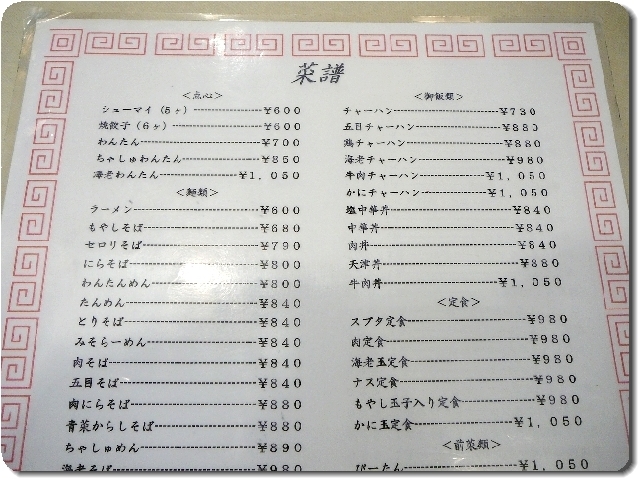 菜譜
＜点心＞
シューマイ（5ヶ）￥600
焼餃子（6ヶ）￥600
わんたん￥700
ちゃしゅわんたん￥850
海老わんたん￥1,050
＜麺類＞
ラーメン￥600
もやしそば￥680
セロリそば￥790
にらそば￥800
わんたんめん￥800
たんめん￥840
とりそば￥840
みそらーめん￥840
肉そば￥840
五目そば￥840
肉にらそば￥880
青菜からしそば￥880
ちゃしゅめん￥890
海老そば￥980
＜御飯類＞
チャーハン￥730
五目チャーハン￥880
鶏チャーハン￥880
海老チャーハン￥980
牛肉チャーハン￥1,050
かにチャーハン￥1,050
塩中華丼￥840
中華丼￥840
肉丼￥840
天津丼￥880
牛肉丼￥1,050
＜定食＞
スブタ定食￥980
肉定食￥980
海老玉定食￥980
ナス定食￥980
もやし玉子入り定食￥980
かに玉定食￥1,050
＜前菜類＞
ぴーたん￥1,050